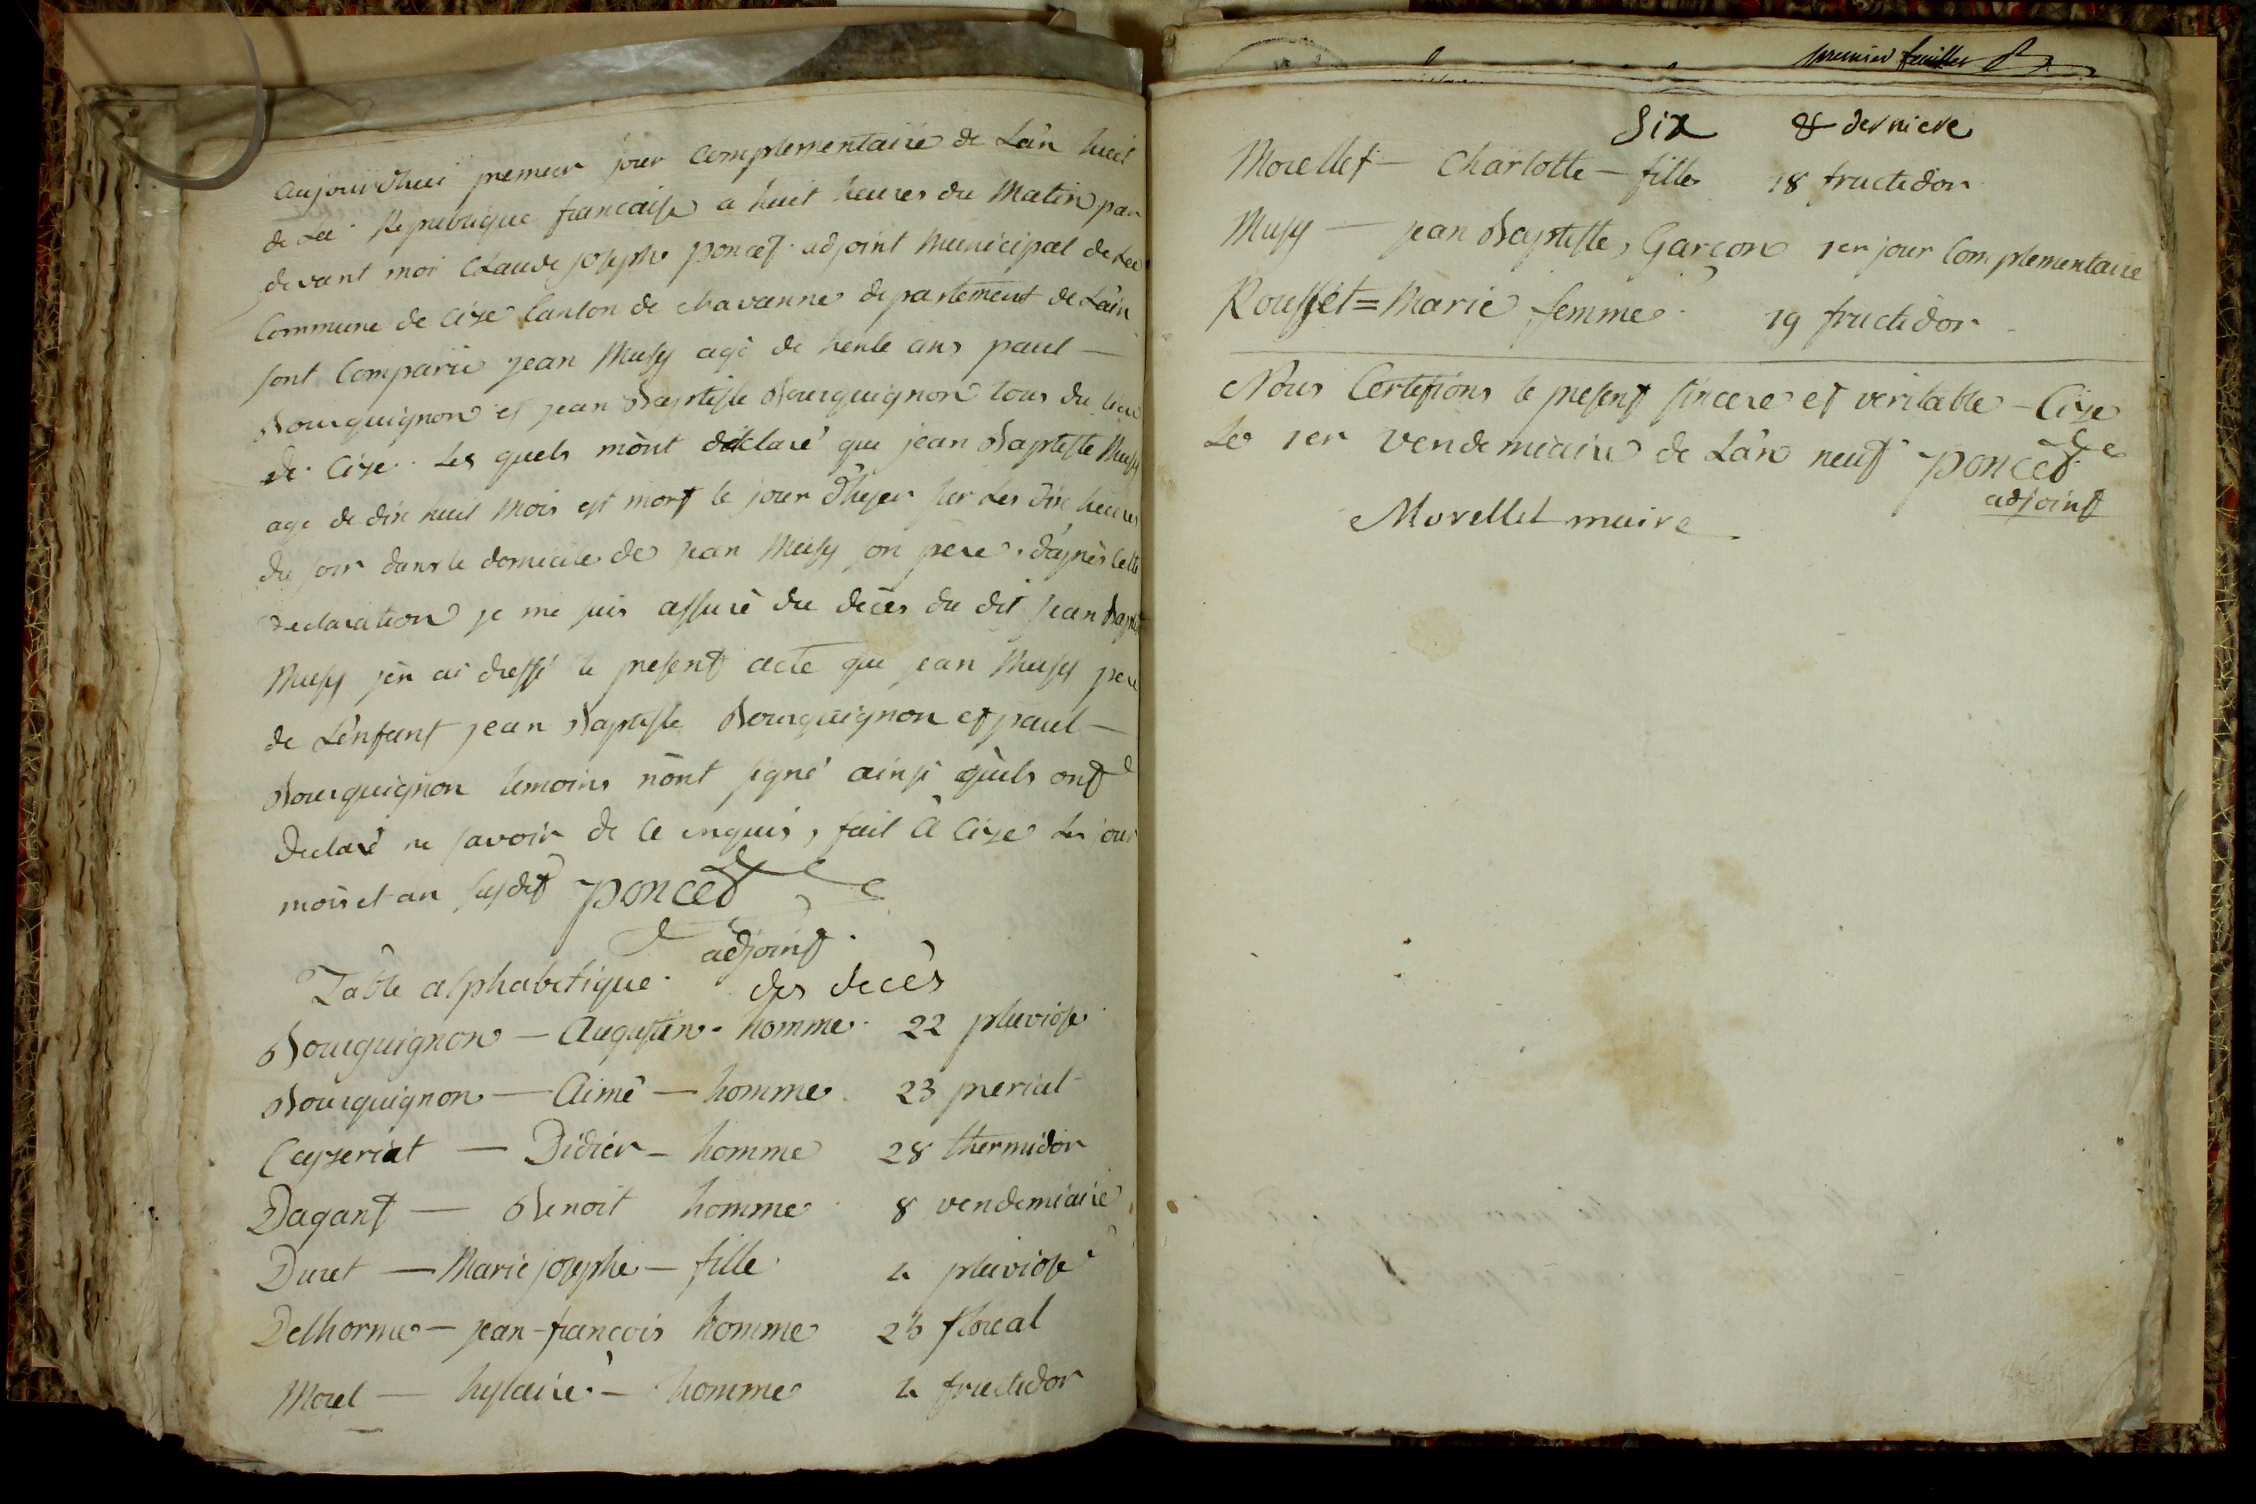 aujourdhui premier jour Complementaire de Lân huit
de La Republique francaise a huit heures du Matin par
devant moi Claude joseph poncet adjoint Municipal de La
Commune de Cize Canton de chavanne departement de Lâin
sont Comparü jean Musy agé de trente ans paul —
Bourguignon et jean Baptiste Bourguignon tous du lieu
de Cize Les quels mônt déclaré que jean Baptiste Musy
age de dix huit Mois est mort le jour Dhyer sur Les dix heures
du soir dans le domicile de jean Musy son pere. dâprès cette
declaration je me suis assuré du décès du dit jean Baptiste
Musy jên ai dressé le present acte que jean Musy pere
de Lênfant jean Baptiste Bourguignon et paul —
Bourguignon temoins nônt signé ainsi quîls ont
declaré ne savoir de ce enquis, fait â Cize Les jour
mois et an susdit poncet
adjoint
Table alphabetique des decès
Bourguignon — Augustin - homme 22 pluviose
Bourguignon — Aimé — homme 23 prerial
Ceyzeriat — Didier — homme 28 thermidor
Dagant — Benoit homme 8 vendemiaire
Duret — Marie josephe — fille 4 pluviose
Delhorme — jean - francois homme floreal
Morel — hylaire — homme 4 fructidor
premier feuillet
Six & derniere
Morellet — Charlotte — fille 18 fructidor
Musy — jean Baptiste, Garçon 1er jour Complementaire
Rousset = Marie femme 19 fructidor
Nous Certifions le present sincere et veritable — Cize
Le 1er vendemiaire de Lân neuf poncet
adjoint
Morellet maire